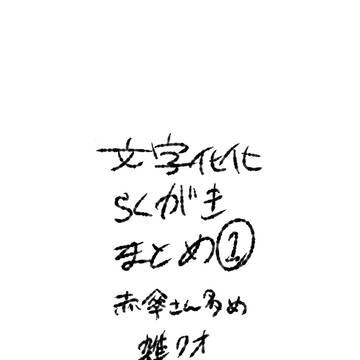 文字化化
らくがき
まとめ①
赤傘さん多め
雑クオ